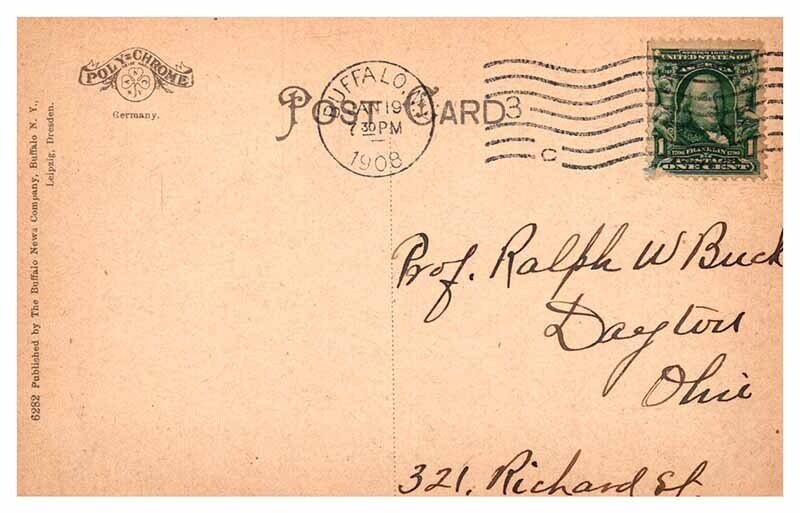 POLY-CHROME
Germany.
6282 Published by The Buffalo News Company, Buffalo N. Y.,
Leipzig, Dresden.
POST CARD
BUFFALO, N.Y.
JAN 19
7 30 PM
1908
3
C
SERIES 1902
UNITED STATES OF
AMERICA
1706 FRANKLIN 1790
1 1
POSTAGE
ONE CENT
Prof. Ralph W Buck
Dayton
Ohio
321, Richard St.